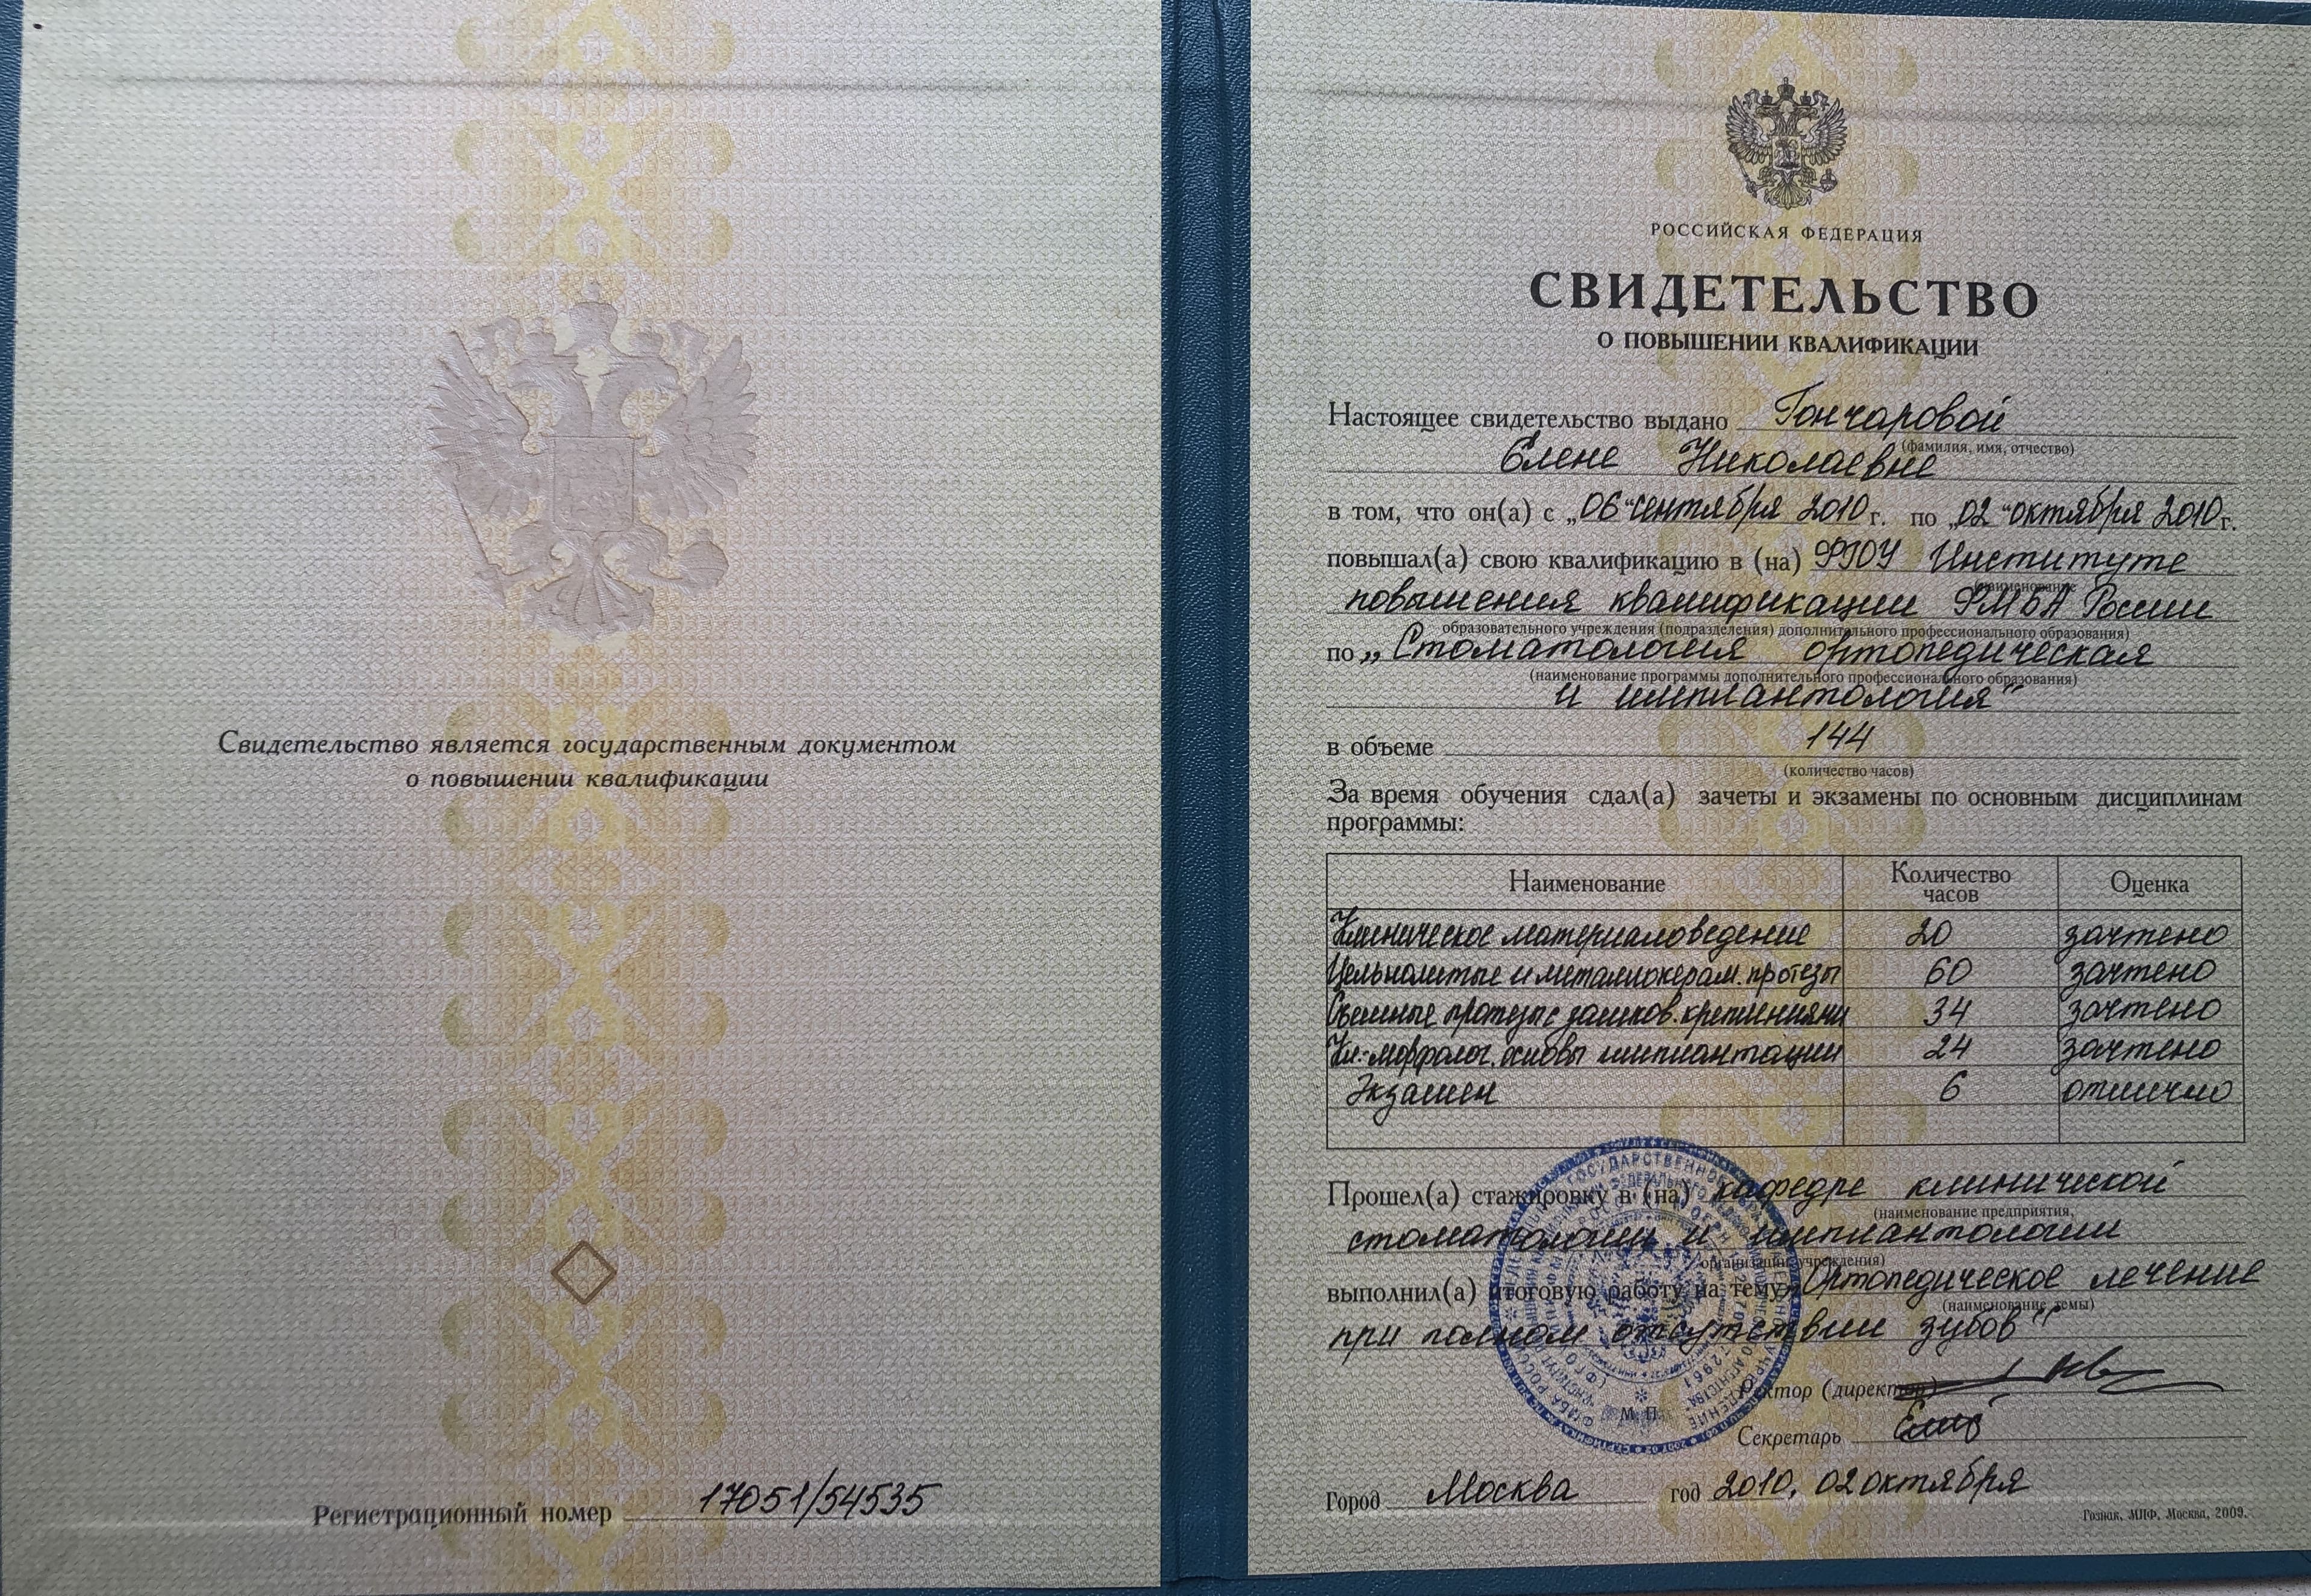 Свидетельство является государственным документом
о повышении квалификации
Регистрационный номер 17051/54535
РОССИЙСКАЯ ФЕДЕРАЦИЯ
СВИДЕТЕЛЬСТВО
О ПОВЫШЕНИИ КВАЛИФИКАЦИИ
Настоящее свидетельство выдано Гончаровой
(фамилия, имя, отчество)
Елене Николаевне
в том, что он(а) с „06" сентября 2010 г. по „02" октября 2010 г.
повышал(а) свою квалификацию в (на) ФГОУ Институте
(наименование
повышения квалификации ФМБА России
образовательного учреждения (подразделения) дополнительного профессионального образования)
по „Стоматология ортопедическая
(наименование программы дополнительного профессионального образования)
и имплантология"
в объеме 144
(количество часов)
За время обучения сдал(а) зачеты и экзамены по основным дисциплинам
программы:
Наименование Количество часов Оценка
Клиническое материаловедение 20 зачтено
Цельнолитые и металлокерам. протезы 60 зачтено
Съемные протезы с замков. креплениями 34 зачтено
Кл.-морфолог. основы имплантации 24 зачтено
Экзамен 6 отлично
Прошел(а) стажировку в (на) кафедре клинической
(наименование предприятия,
стоматологии и имплантологии
организации, учреждения)
выполнил(а) итоговую работу на тему „Ортопедическое лечение
(наименование темы)
при полном отсутствии зубов"
Ректор (директор)
М. П.
Секретарь
Город Москва год 2010, 02 октября
Гознак, МПФ, Москва, 2009.